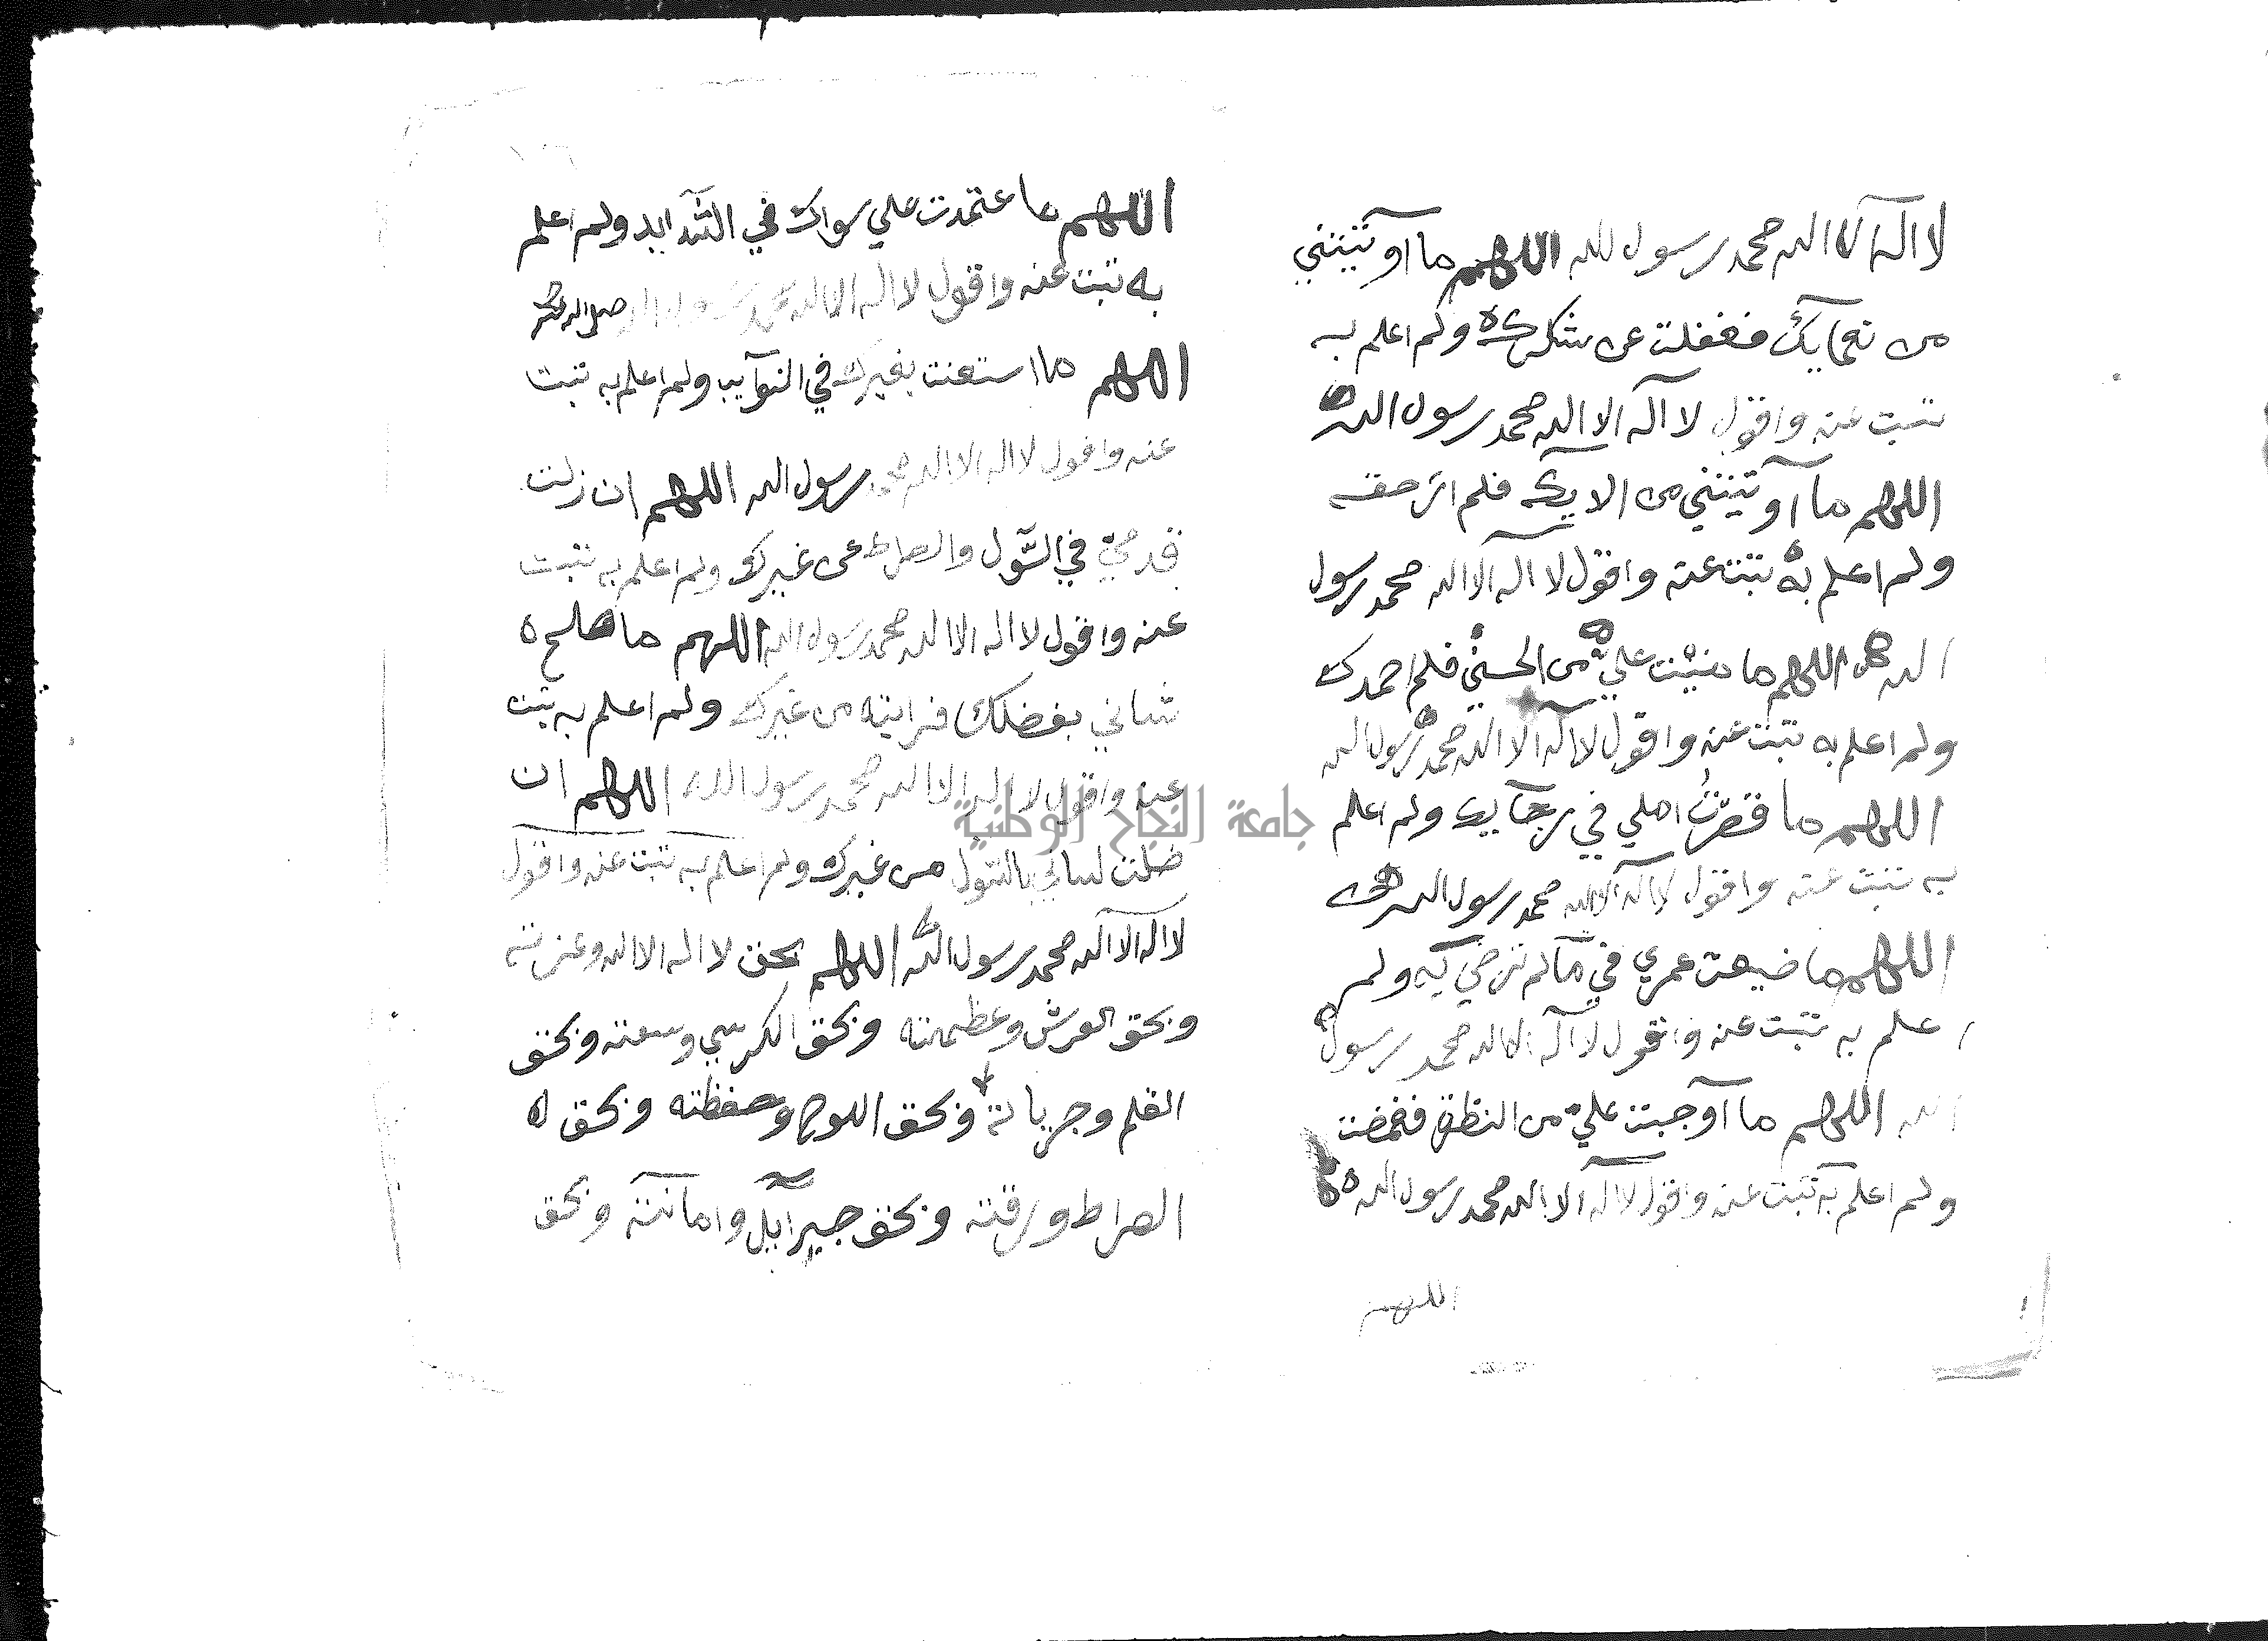 لا اله الا الله محمد رسول لله اللهم ما آوتيتني
من نعمايك فغفلت عن شكرك ولم اعلم به
تبت عنه واقول لا آله الا الله محمد رسول الله
اللهم ما آوتيتني من الايك فلم ارحقه
ولم اعلم به تبت عنه واقول لا اله الا الله محمد رسول
الله اللهم ما منيت علي من الحسني فلم احمدك
ولم اعلم به تبت عنه واقول لا اله الا الله محمد رسول الله
اللهم ما قصرت املي في رجآيك ولم اعلم
به تبت عنه واقول لا اله الا الله محمد رسول الله
اللهم ما ضيعت عمري في مآلم ترضي به ولم
اعلم به تبت عنه واقول لا آله الا الله محمد رسول
الله اللهم ما آوجبت علي من النظر فغمضت
ولم اعلم به تبت عنه واقول لا اله الا الله محمد رسول الله
اللهم
اللهم ما عتمدت علي سواك في الشدآيد ولم اعلم
به تبت عنه واقول لا اله الا الله محمد رسول الله
اللهم ما استعنت بغيرك في النوآيب ولم اعلم به تبت
عنه واقول لا اله الا الله محمد رسول الله اللهم ان زلت
قدمي في السّول والصراط عن غيرك ولم اعلم به تبت
عنه واقول لا اله الا الله محمد رسول الله اللهم ما صلح
شاني بفضلك فرايته من غيرك ولم اعلم به تبت
عنه واقول لا اله الا الله محمد رسول الله اللهم ان
ضلت لساني بالسّول من غيرك ولم اعلم به تبت عنه واقول
لا اله الا الله محمد رسول الله اللهم بحق لا اله الا الله وعزته
وبحق العرش وعظمته وبحق الكرسي وسعته وبحق
القلم وجريانه وبحق اللوح وحفظته وبحق
الصراط ورقته وبحق جبرآيل وامانته وبحق
جامعة النجاح الوطنية